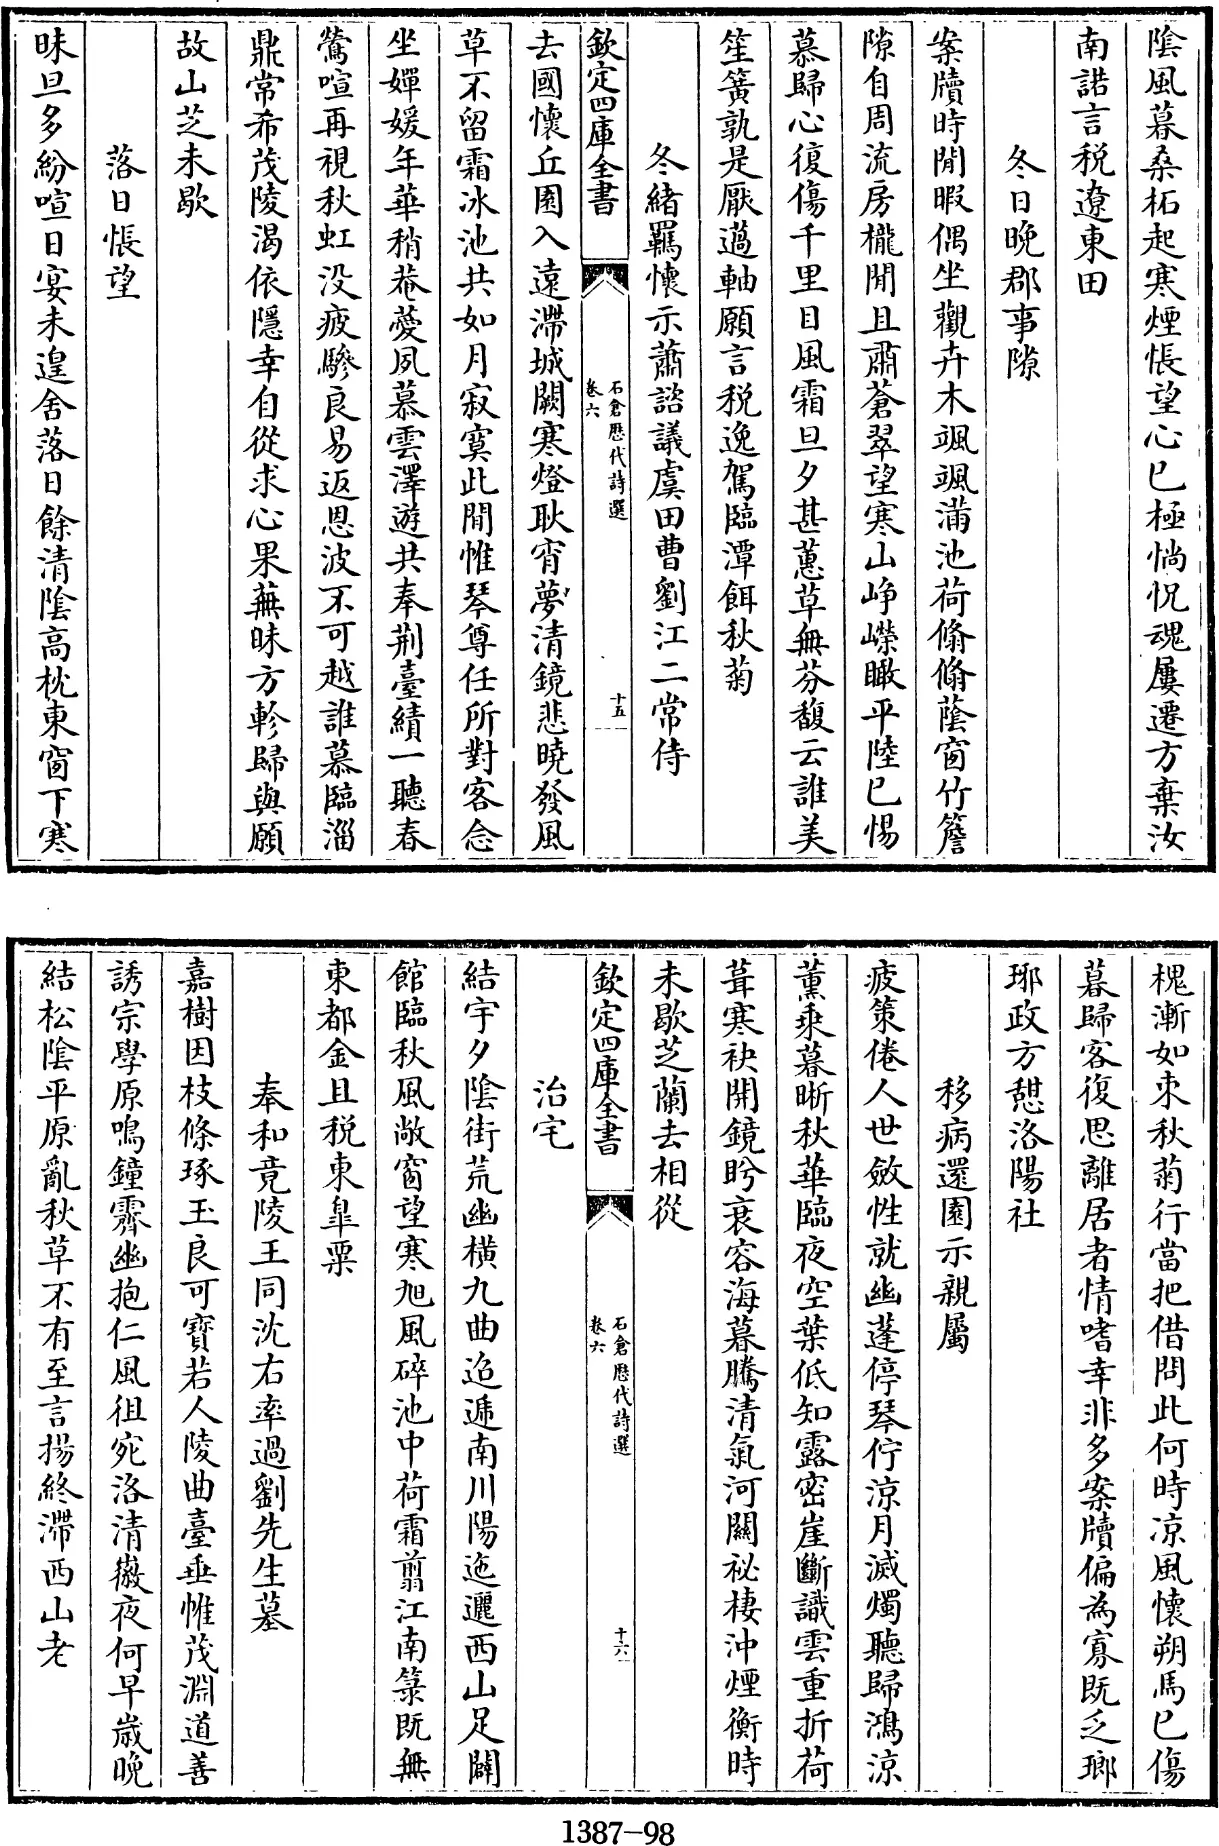 陰風暮桑柘起寒煙悵望心已極惝怳魂屢遷方棄汝
南諾言税遼東田
冬日晚郡事隙
案牘時閒暇偶坐觀卉木颯颯滿池荷翛翛蔭窗竹簷
隙自周流房櫳閒且肅蒼翠望寒山崢嶸瞰平陸已惕
慕歸心復傷千里目風霜旦夕甚蕙草無芬馥云誰美
笙簧孰是厭薖軸願言税逸駕臨潭餌秋菊
冬緒羈懷示蕭諮議虞田曹劉江二常侍
欽定四庫全書
石倉歷代詩選
卷六
十五
去國懷丘園入遠滯城闕寒燈耿宵夢清鏡悲曉發風
草不留霜冰池共如月寂寞此閒惟琴尊任所對客念
坐嬋媛年華稍菴薆夙慕雲澤遊共奉荆臺績一聽春
鶯喧再視秋虹没疲驂良易返恩波不可越誰慕臨淄
鼎常希茂陵渴依隱幸自從求心果蕪昧方軫歸與願
故山芝未歇
落日悵望
昧旦多紛喧日宴未遑舍落日餘清陰高枕東窗下寒
槐漸如束秋菊行當把借問此何時凉風懷朔馬已傷
暮歸客復思離居者情嗜幸非多案牘偏為寡既乏瑯
琊政方憩洛陽社
移病還園示親屬
疲策倦人世斂性就幽蓬停琴佇涼月滅燭聽歸鴻涼
薰乘暮晰秋華臨夜空葉低知露密崖斷識雲重折荷
葺寒袂開鏡眄衰容海暮騰清氣河關祕棲沖煙衡時
未歇芝蘭去相從
欽定四庫全書
石倉歷代詩選
卷六
十六
治宅
結宇夕陰街荒幽横九曲迢遞南川陽迤邐西山足闢
館臨秋風敞窗望寒旭風碎池中荷霜翦江南菉既無
東都金且税東臯粟
奉和竟陵王同沈右率過劉先生墓
嘉樹因枝條琢玉良可寶若人陵曲臺垂帷茂淵道善
誘宗學原鳴鐘霽幽抱仁風徂宛洛清徽夜何早歲晚
結松陰平原亂秋草不有至言揚終滯西山老
1387-98